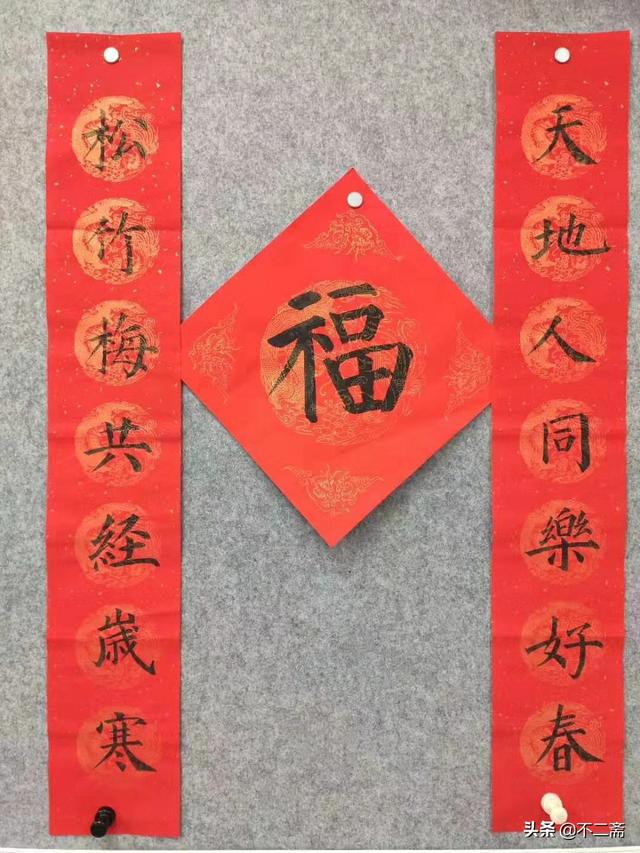 天地人同樂好春
松竹梅共経歳寒
福
头条 @不二斋